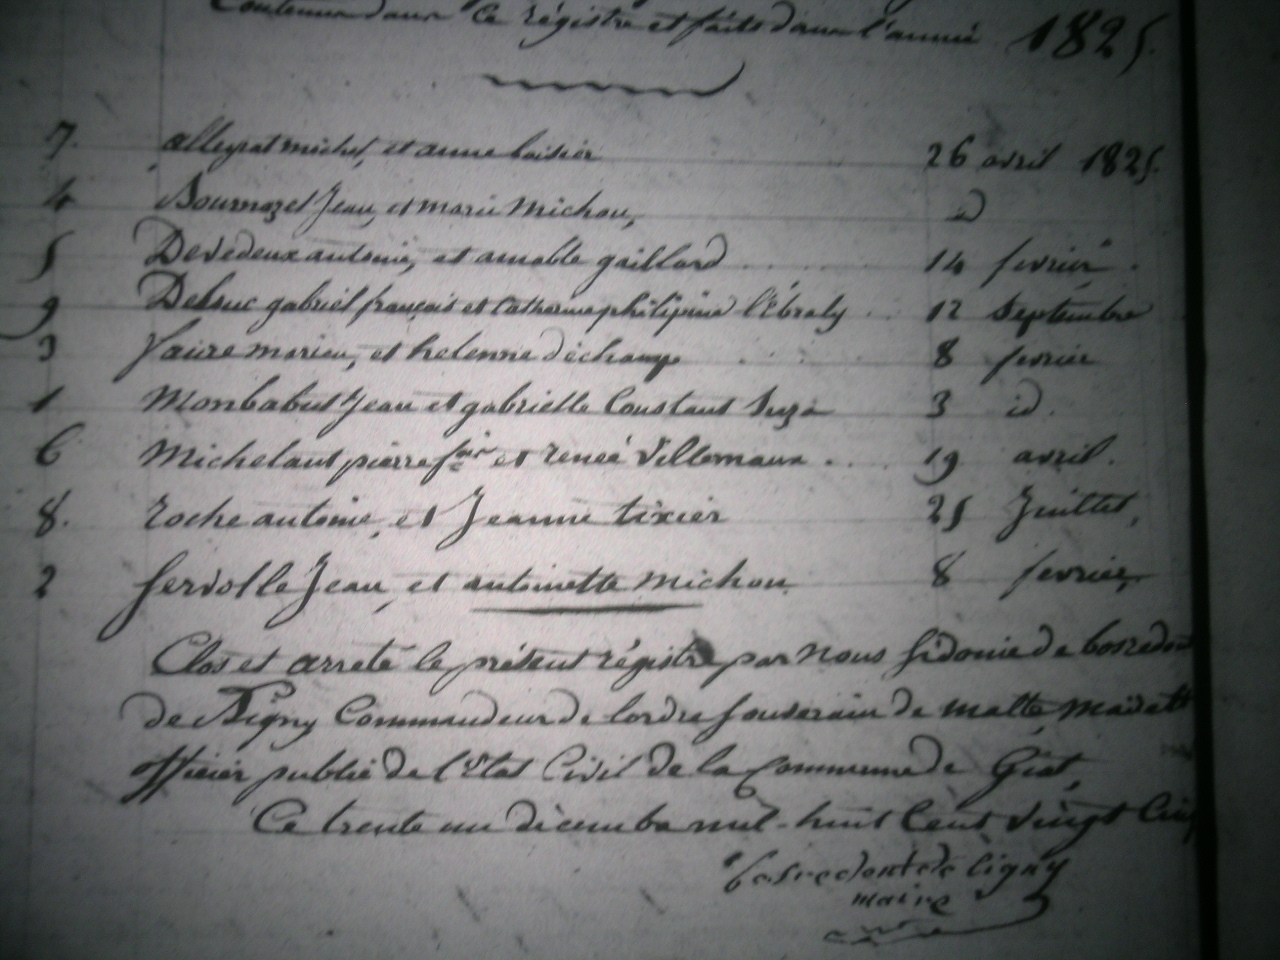 Contenus dans ce régistre et faits dans l'année 1825.
7. alleyrat michel, et anne
4 Bournazel Jean, et marie Michon, id
5 Devedeux antoine, et amable gaillard 14 fevrier.
9 Delsuc gabriel français et Catherine philipine l'Ebraly 12 septembre
3 faure marien, et helenne déchamp 8 fevrier
1 Monbabut Jean et gabrielle Constant 3 id.
6 Michelant pierre et renée Villemaux 19 avril.
8. roche antoine, et Jeanne tixier 25 Juillet,
2 servolle Jean, et antoinette michon 8 fevrier,
Clos et arreté le présent régistre par nous sidonie de bosredon
de Ligny Commandeur de lordre souverain de malte
officier public de l'Etat Civil de la Commune de Giat,
Ce trente un décembre mil-huit Cent vingt Cinq
bosredont de ligny
maire